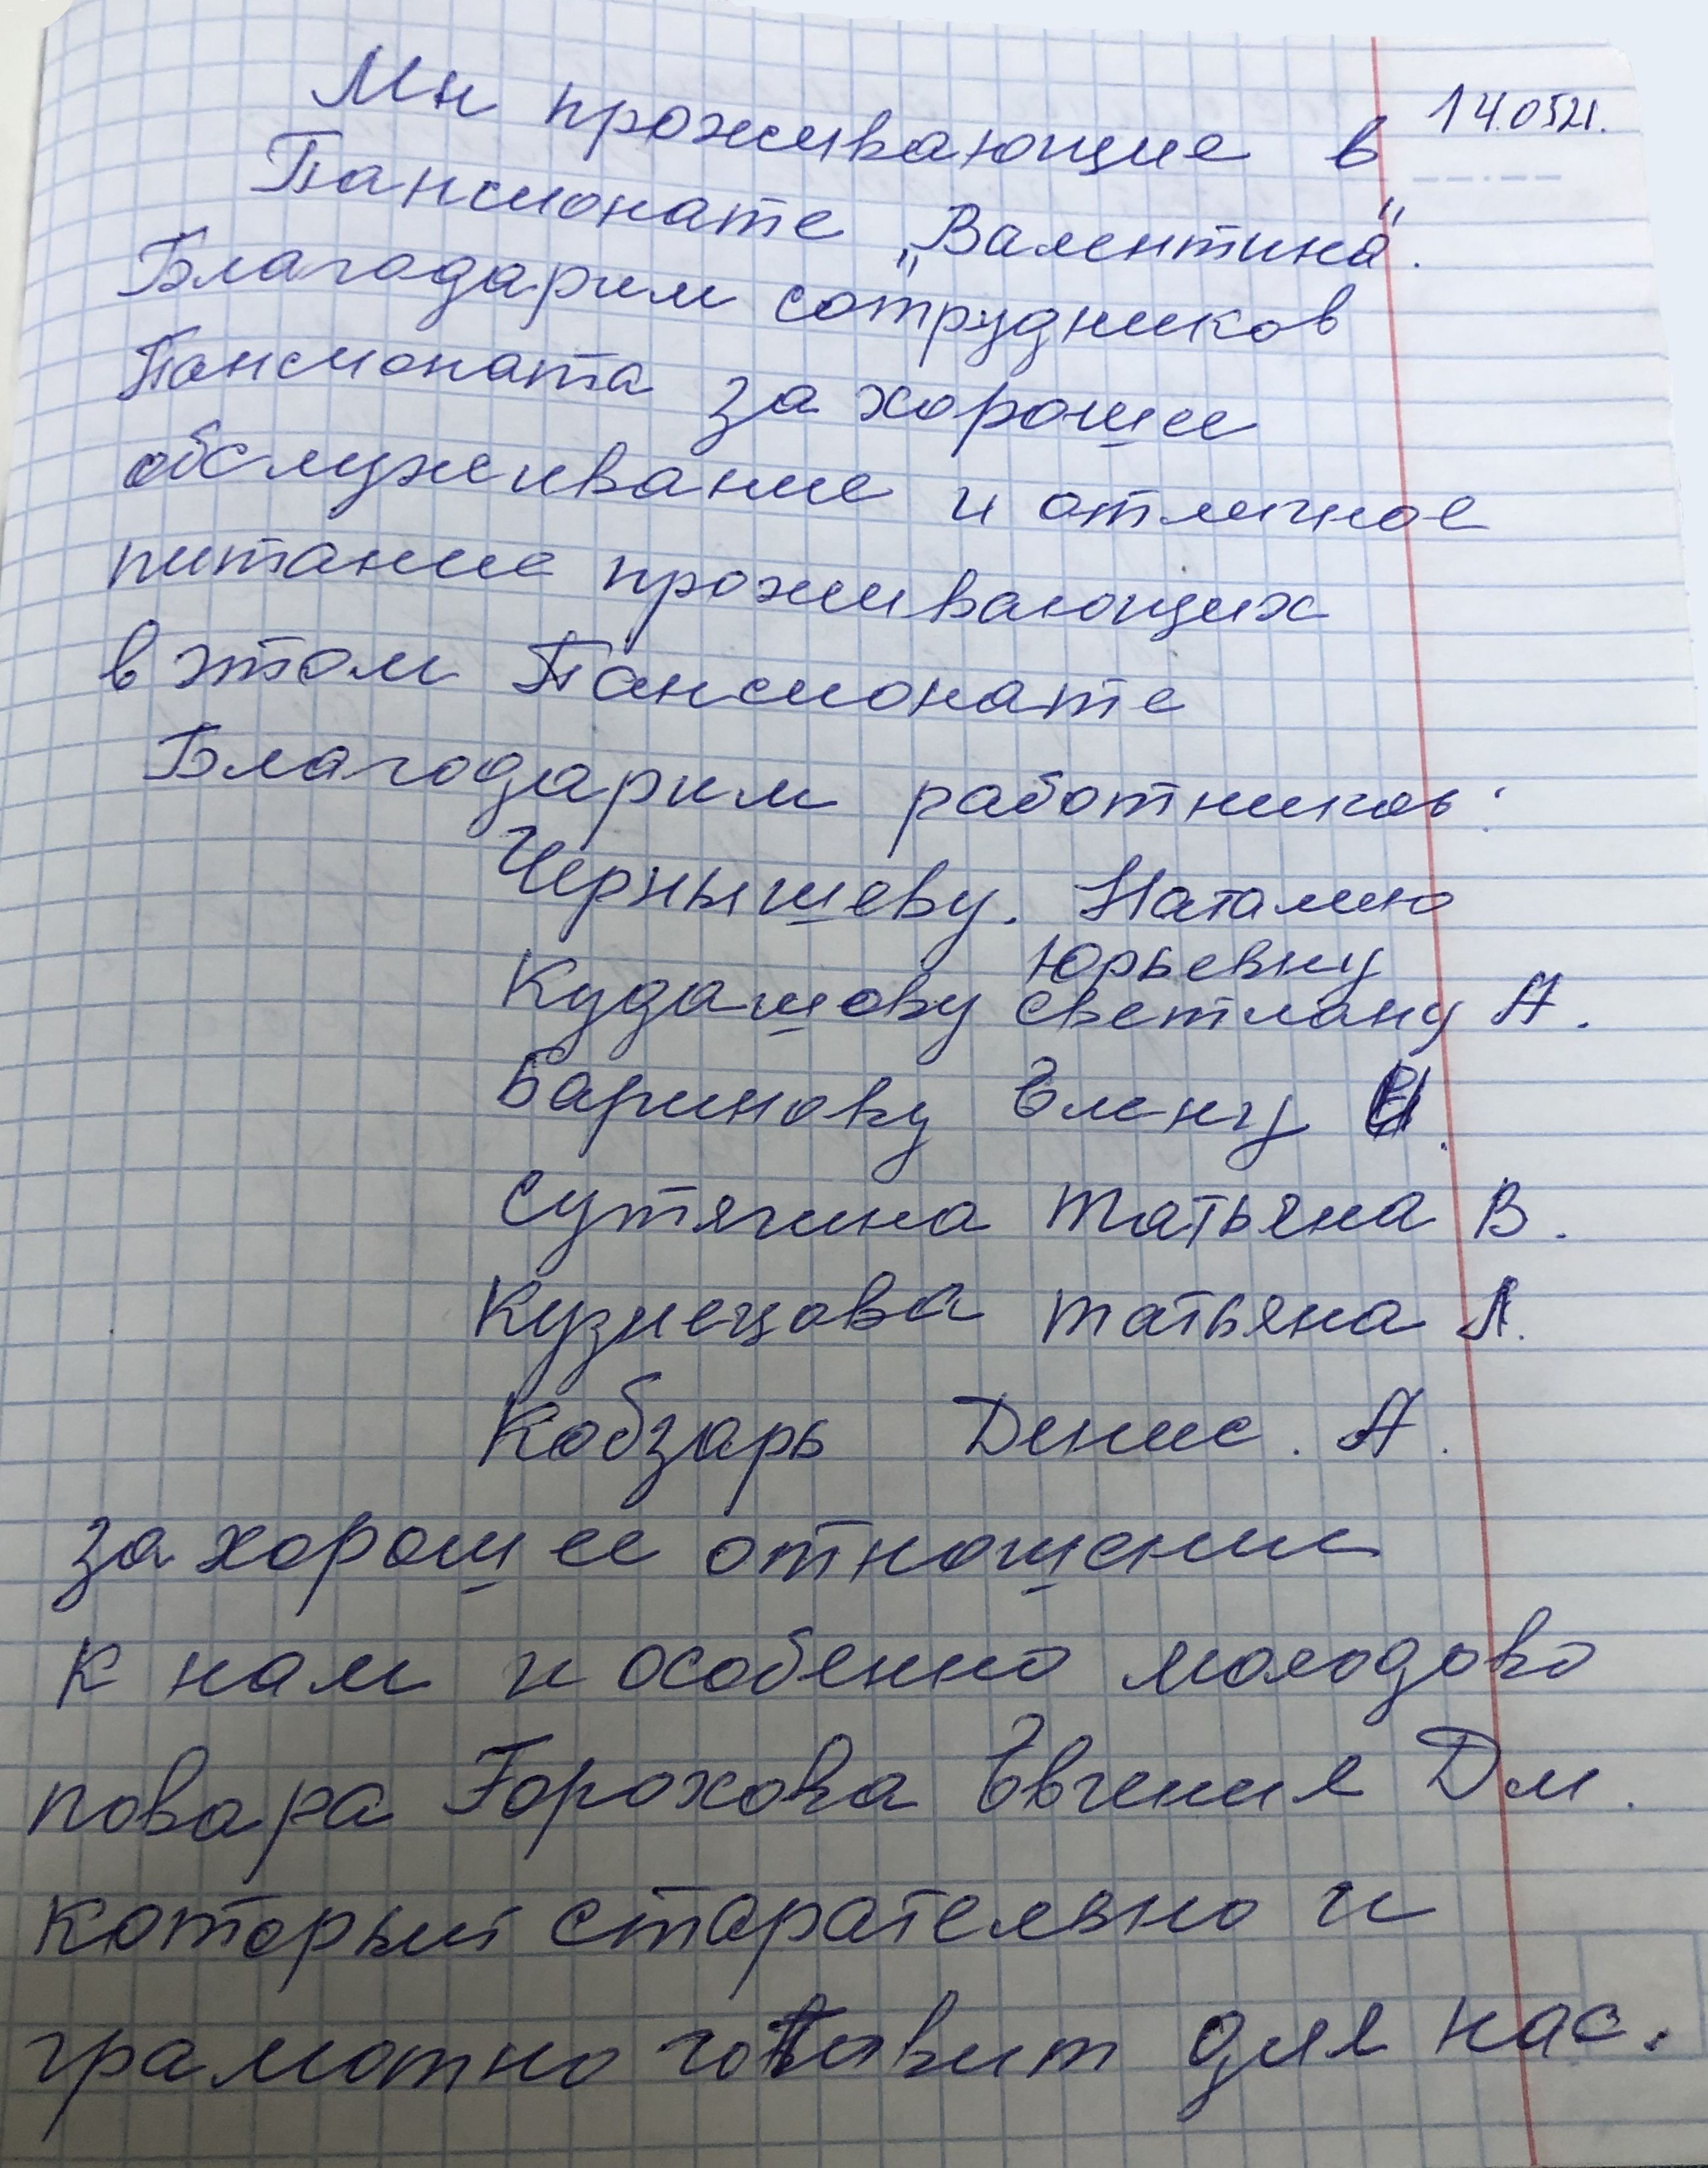 14.05 21.
Мы проживающие в
Пансионате „Валентина".
Благодарим сотрудников
Пансионата за хорошее
обслуживание и отличное
питание проживающих
в этом Пансионате
Благодарим работников:
Чернышеву. Наталию
Юрьевну
Кудашову Светлану А.
Баринову Елену
Сутягина Татьяна В.
Кузнецова Татьяна А.
Кобзарь Денис. А.
за хорошее отношение
к нам и особенно молодово
повара Горохова Евгения Дм.
который старательно и
грамотно готовит для нас.